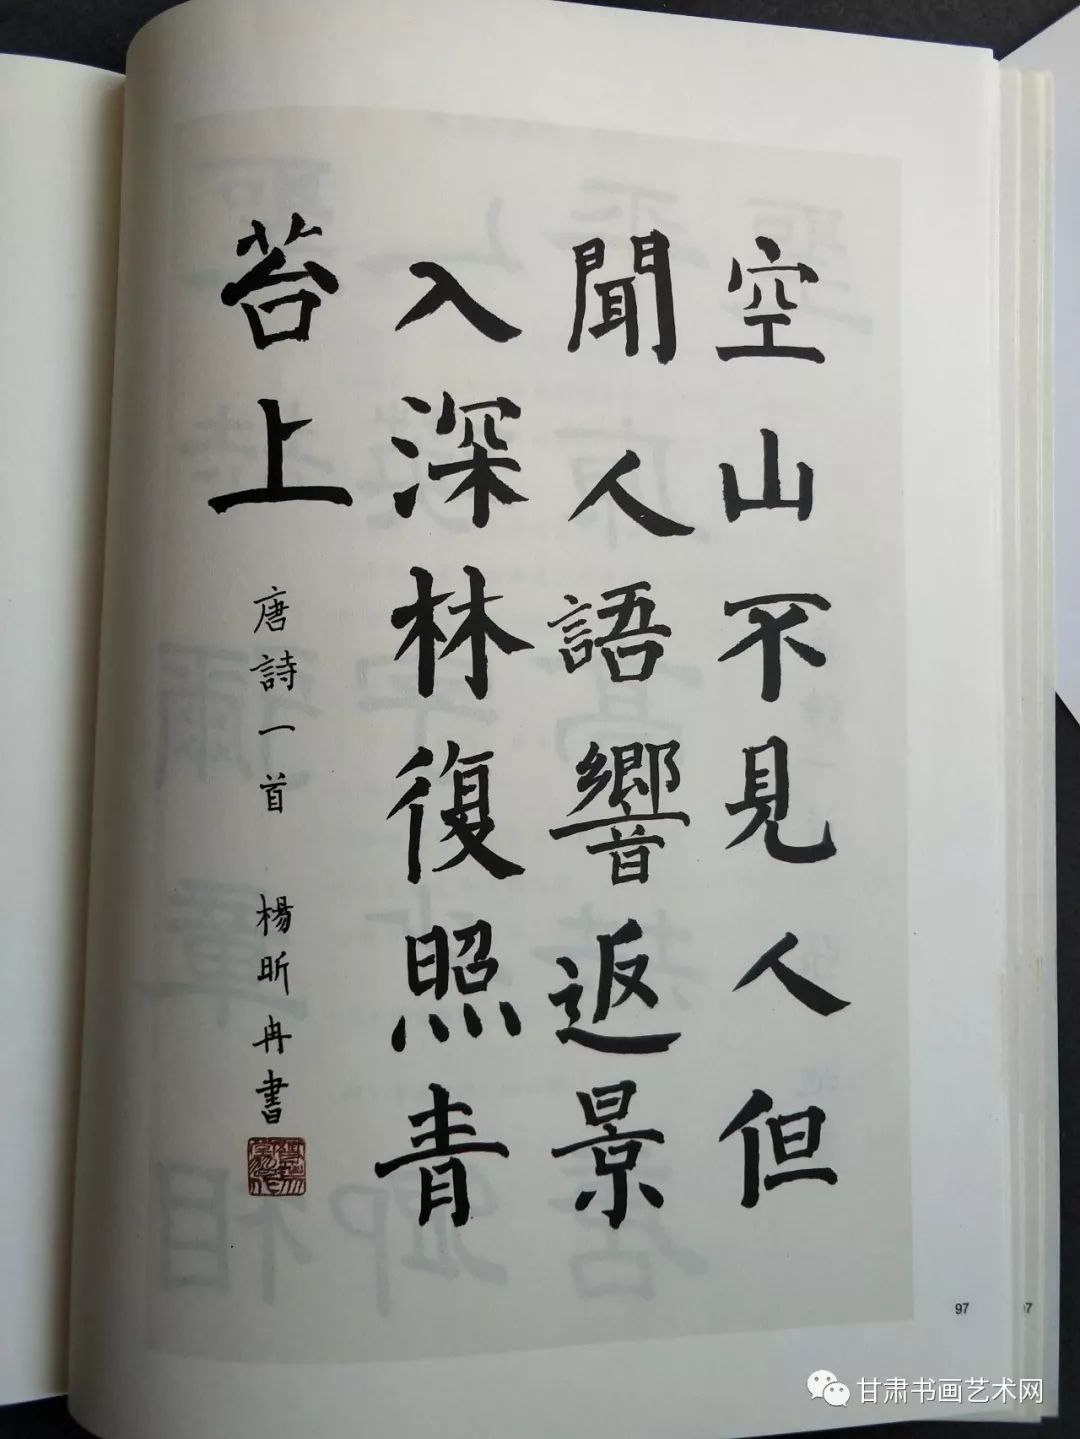 空山不見人但
聞人語響返景
入深林復照青
苔上
唐詩一首 楊昕冉書
97
甘肃书画艺术网